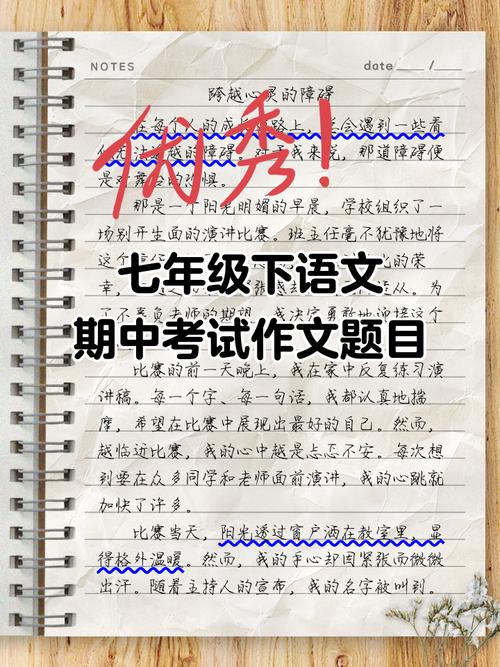 NOTES
date ___ / ___
跨越心灵的障碍
优秀!
在每个人的成长路上,
会遇到一些看
越的障碍。对于我来说,那道障碍便
是对舞台的恐惧。
那是一个阳光明媚的早晨,学校组织了一
场别开生面的演讲比赛。班主任毫不犹豫地将
这个
的荣
幸,
七年级下语文
期中考试作文题目
比赛的前一天晚上,我在家中反复练习演
讲稿。每一个字、每一句话,我都认真地揣
摩,希望在比赛中展现出最好的自己。然而,
越临近比赛,我的心中越是忐忑不安。每次想
到要在众多同学和老师面前演讲,我的心跳就
加快了许多。
比赛当天,阳光透过窗户洒在教室里,显
得格外温暖。然而,我的手心却因紧张而微微
出汗。随着主持人的宣布,我的名字被叫到。